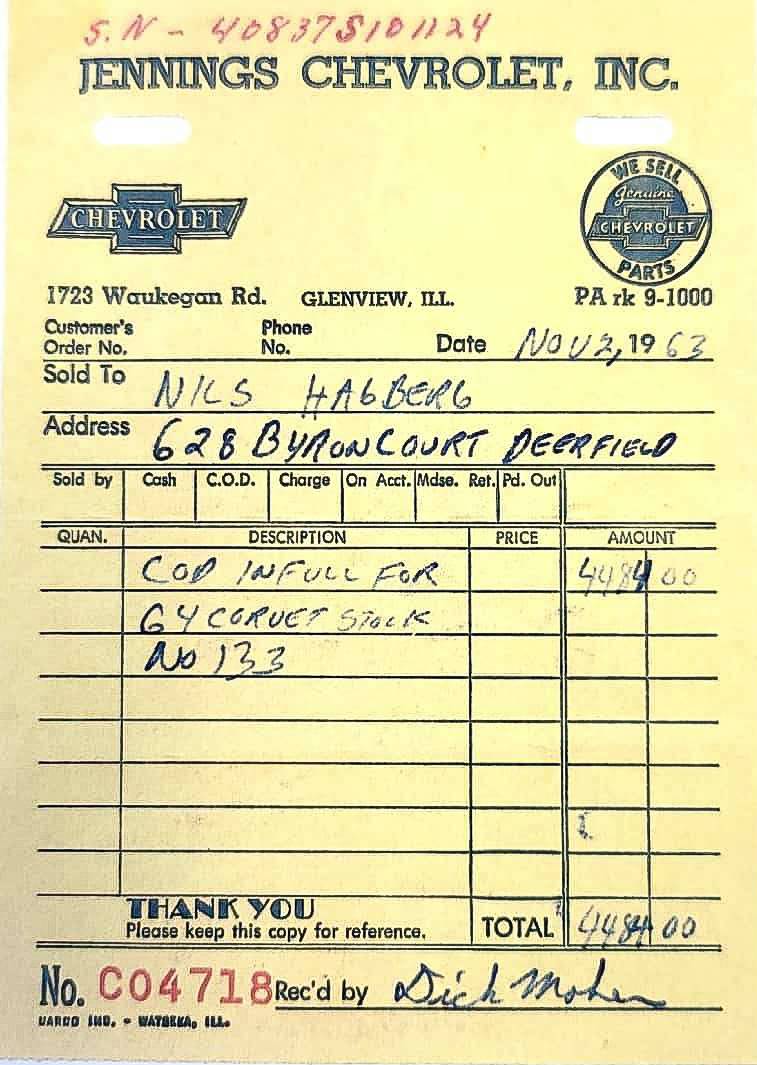 S.N - 40837S101124
JENNINGS CHEVROLET, INC.
CHEVROLET
WE SELL
Genuine
CHEVROLET
PARTS
1723 Waukegan Rd. GLENVIEW, ILL. PA rk 9-1000
Customer's Order No. Phone No. Date NOV 2, 1963
Sold To NILS HAGBERG
Address 628 BYRON COURT DEERFIELD
Sold by Cash C.O.D. Charge On Acct. Mdse. Ret. Pd. Out
QUAN. DESCRIPTION PRICE AMOUNT
COD IN FULL FOR 4484 00
64 CORVET STOCK
NO 133
THANK YOU
Please keep this copy for reference. TOTAL 4484 00
No. C04718 Rec'd by Dick
WATSEKA, ILL.